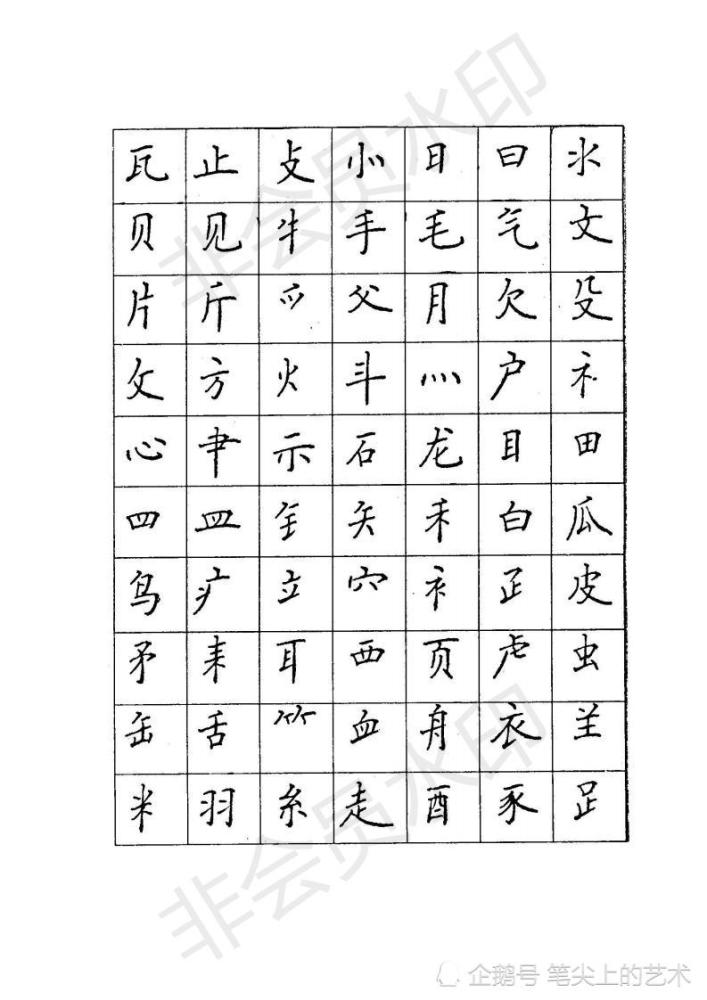 瓦 止 攴 㣺 日 曰 氺
贝 见 牛 手 毛 气 文
片 斤 爫 父 月 欠 殳
攵 方 火 斗 灬 户 礻
心 肀 示 石 龙 目 田
四 皿 钅 矢 禾 白 瓜
鸟 疒 立 穴 衤 疋 皮
矛 耒 耳 西 页 虍 虫
缶 舌 ⺮ 血 舟 衣 𦍌
米 羽 糸 走 酉 豕 𧾷
非会员水印
非会员水印
企鹅号 笔尖上的艺术